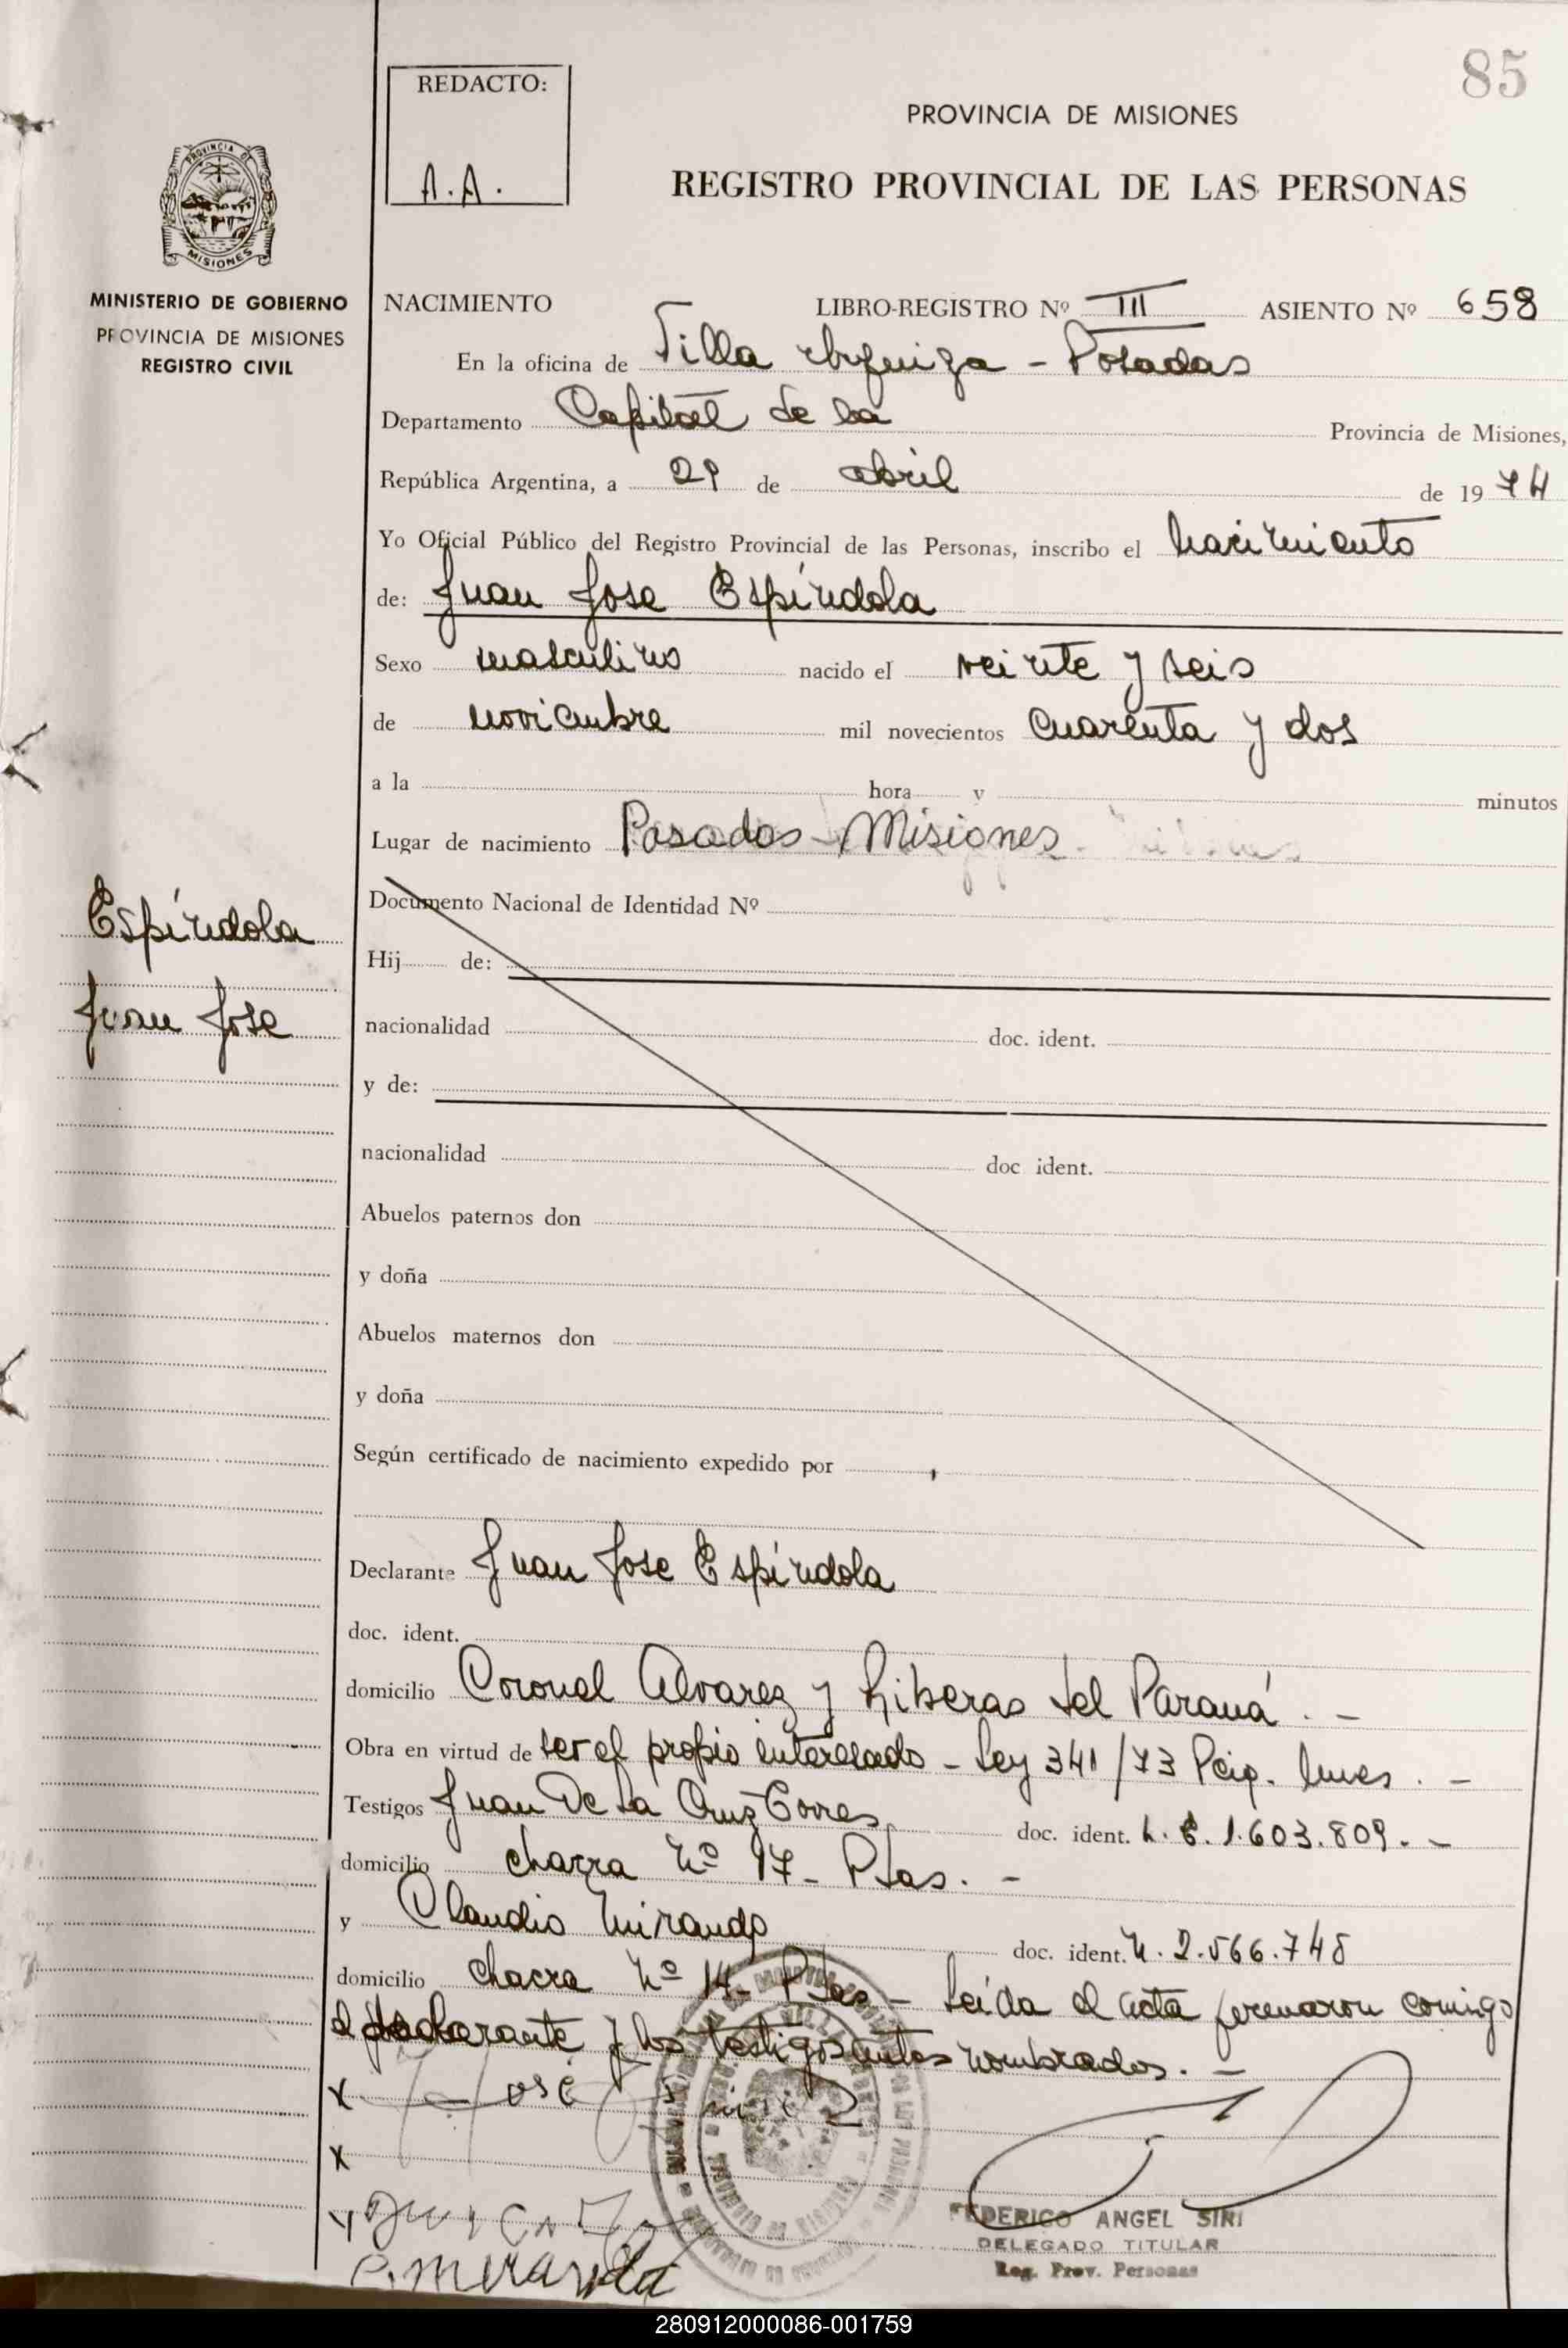 85
REDACTO:
A.A.
PROVINCIA DE MISIONES
REGISTRO PROVINCIAL DE LAS PERSONAS
MISIONES
MINISTERIO DE GOBIERNO
PROVINCIA DE MISIONES
REGISTRO CIVIL
NACIMIENTO LIBRO-REGISTRO Nº III ASIENTO Nº 658
En la oficina de Villa Urquiza - Posadas
Departamento Capital de la Provincia de Misiones,
República Argentina, a 29 de abril de 1974
Yo Oficial Público del Registro Provincial de las Personas, inscribo el nacimiento
de: Juan Jose Espíndola
Sexo masculino nacido el veinte y seis
de noviembre mil novecientos cuarenta y dos
a la hora y minutos
Lugar de nacimiento Posadas - Misiones
Espíndola
Juan Jose
Documento Nacional de Identidad Nº
Hij de:
nacionalidad doc. ident.
y de:
nacionalidad doc ident.
Abuelos paternos don
y doña
Abuelos maternos don
y doña
Según certificado de nacimiento expedido por
Declarante Juan Jose Espíndola
doc. ident.
domicilio Coronel Alvarez y Riberas del Paraná . -
Obra en virtud de ser el propio interesado - Ley 341/73
Testigos Juan De La Cruz doc. ident. 1.603.809. -
domicilio chacra Nº 17 - Pdas. -
y Claudio Miranda doc. ident. M. 2.566.748
domicilio chacra Nº 14 - Pdas - Leída el acta firmaron comigo
el declarante y los testigos antes nombrados. -
x José
x
C. Miranda
FEDERICO ANGEL SIRI
DELEGADO TITULAR
Reg. Prov. Personas
280912000086-001759